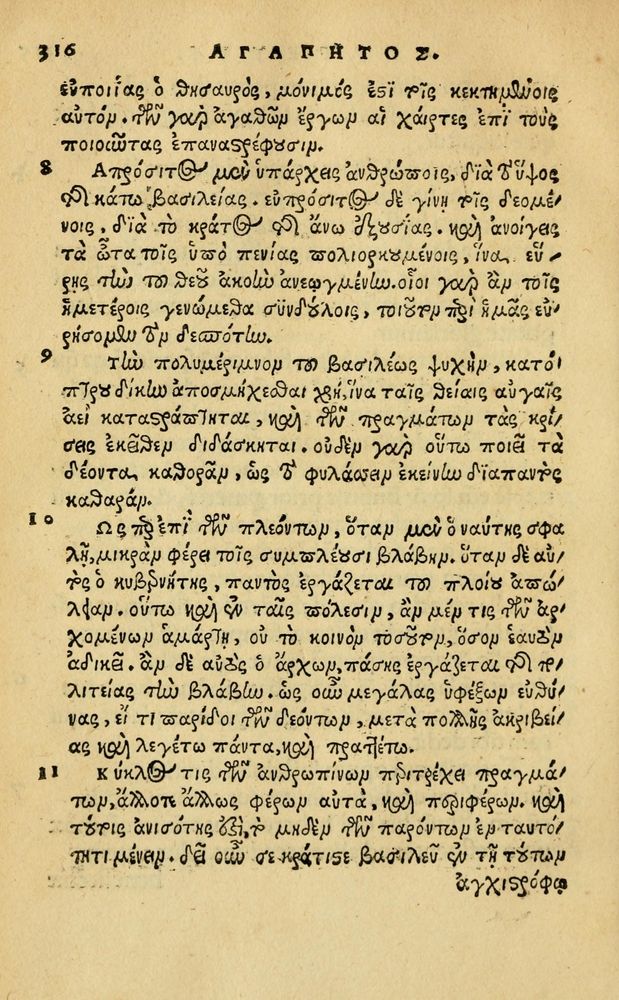 316 ΑΓΑΠΗΤΟΣ.
εὐποιΐας ὁ θησαυρὸς, μόνιμός ἐστι τοῖς κεκτημένοις
αὐτόν. τῶν γὰρ ἀγαθῶν ἔργων αἱ χάριτες ἐπὶ τοὺς
ποιοῦντας ἐπαναστρέφουσιν.
8 Ἀπρόσιτος μὲν ὑπάρχεις ἀνθρώποις, διὰ τὸ ὕψος
τῆς κάτω βασιλείας. εὐπρόσιτος δὲ γίνῃ τοῖς δεομέ/
νοις, διὰ τὸ κράτος τῆς ἄνω ἐξουσίας. καὶ ἀνοίγεις
τὰ ὦτα τοῖς ὑπὸ πενίας πολιορκουμένοις, ἵνα εὕ/
ρῃς τὴν τοῦ θεοῦ ἀκοὴν ἀνεῳγμένην. οἷοι γὰρ ἂν τοῖς
ἡμετέροις γενώμεθα συνδούλοις, τοιοῦτον περὶ ἡμᾶς εὑ/
ρήσομεν τὸν δεσπότην.
9 Τὴν πολυμέριμνον τοῦ βασιλέως ψυχὴν, κατό/
πτρου δίκην ἀποσμήχεσθαι χρὴ, ἵνα ταῖς θείαις αὐγαῖς
ἀεὶ καταστράπτηται, καὶ τῶν πραγμάτων τὰς κρί/
σεις ἐκεῖθεν διδάσκηται. οὐδὲν γὰρ οὕτω ποιεῖ τὰ
δέοντα καθορᾶν, ὡς τὸ φυλάττειν ἐκείνην διαπαντὸς
καθαράν.
10 Ὡς περ ἐπὶ τῶν πλεόντων, ὅταν μὲν ὁ ναύτης σφα
λῇ, μικρὰν φέρει τοῖς συμπλέουσι βλάβην. ὅταν δὲ αὐ/
τὸς ὁ κυβερνήτης, παντὸς ἐργάζεται τοῦ πλοίου ἀπώ/
λειαν. οὕτω καὶ ἐν ταῖς πόλεσιν, ἂν μέν τις τῶν ἀρ/
χομένων ἁμάρτῃ, οὐ τὸ κοινὸν τοσοῦτον, ὅσον ἑαυτὸν
ἀδικεῖ. ἂν δὲ αὐτὸς ὁ ἄρχων, πάσης ἐργάζεται τῆς πο/
λιτείας τὴν βλάβην. ὡς οὖν μεγάλας ὑφέξων εὐθύ/
νας, εἴ τι παρίδοι τῶν δεόντων, μετὰ πολλῆς ἀκριβεί/
ας καὶ λεγέτω πάντα, καὶ πραττέτω.
11 Κύκλος τις τῶν ἀνθρωπίνων περιτρέχει πραγμά/
των, ἄλλοτε ἄλλως φέρων αὐτὰ, καὶ περιφέρων. καὶ
τούτοις ἀνισότης ἐστὶ, τὸ μηδὲν τῶν παρόντων ἐν ταυτό/
τητι μένειν. δεῖ οὖν σε κράτιστε βασιλεῦ ἐν τῇ τούτων
ἀγχιστρόφῳ